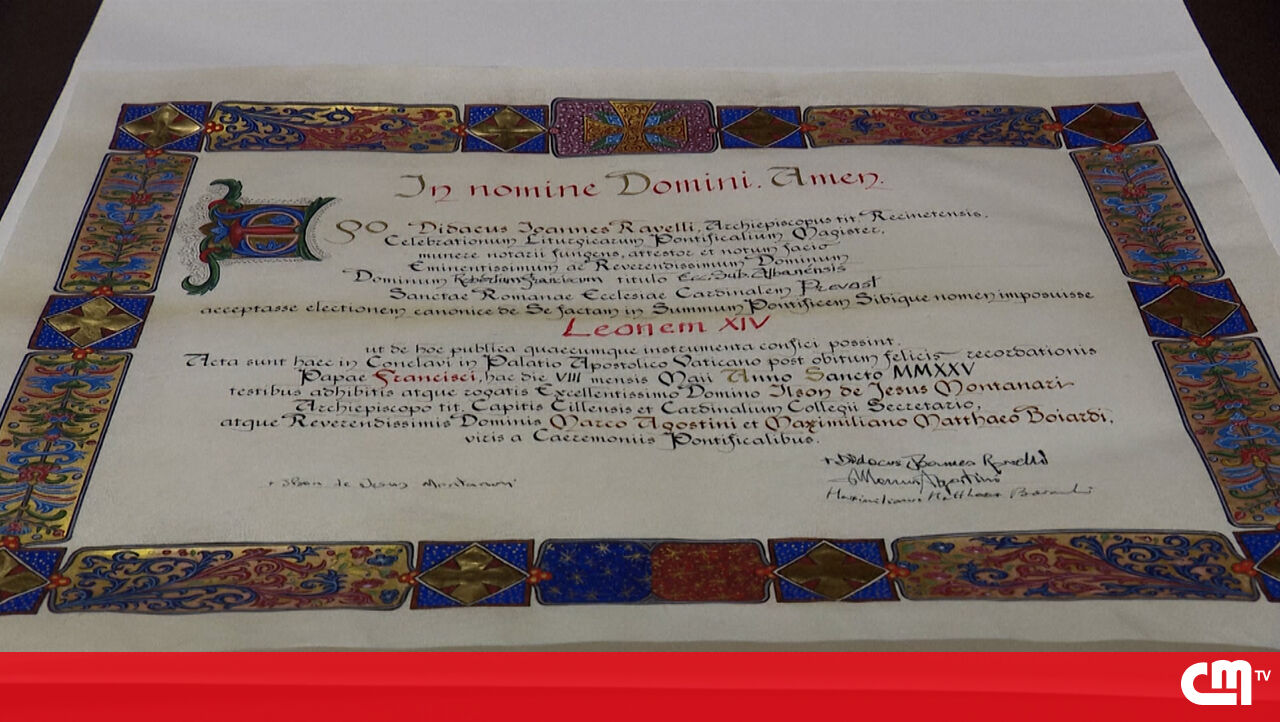 In nomine Domini. Amen.
Ego Didacus Ioannes Ravelli, Archiepiscopus tit. Recinetensis,
Celebrationum Liturgicarum Pontificalium Magister,
munere notarii fungens, attestor et notum facio
Eminentissimum ac Reverendissimum Dominum
Dominum Robertum Franciscum titulo Eccl. Sub. Albanensis
Sanctae Romanae Ecclesiae Cardinalem Prevost
acceptasse electionem canonice de Se factam in Summum Pontificem Sibique nomen imposuisse
Leonem XIV
ut de hoc publica quaecumque instrumenta confici possint.
Acta sunt haec in Conclavi in Palatio Apostolico Vaticano post obitum felicis recordationis
Papae Francisci, hac die VIII mensis Maii Anno Sancto MMXXV
testibus adhibitis atque rogatis Excellentissimo Domino Ilson de Jesus Montanari
Archiepiscopo tit. Capitis Cillensis et Cardinalium Collegii Secretario,
atque Reverendissimis Dominis Marco Agostini et Maximiliano Matthaeo Boiardi,
viris a Caeremoniis Pontificalibus.
+ Didacus Ioannes Ravelli
+ Ilson de Jesus Montanari
Marcus Agostini
Maximilianus Matthaeus Boiardi
CM TV